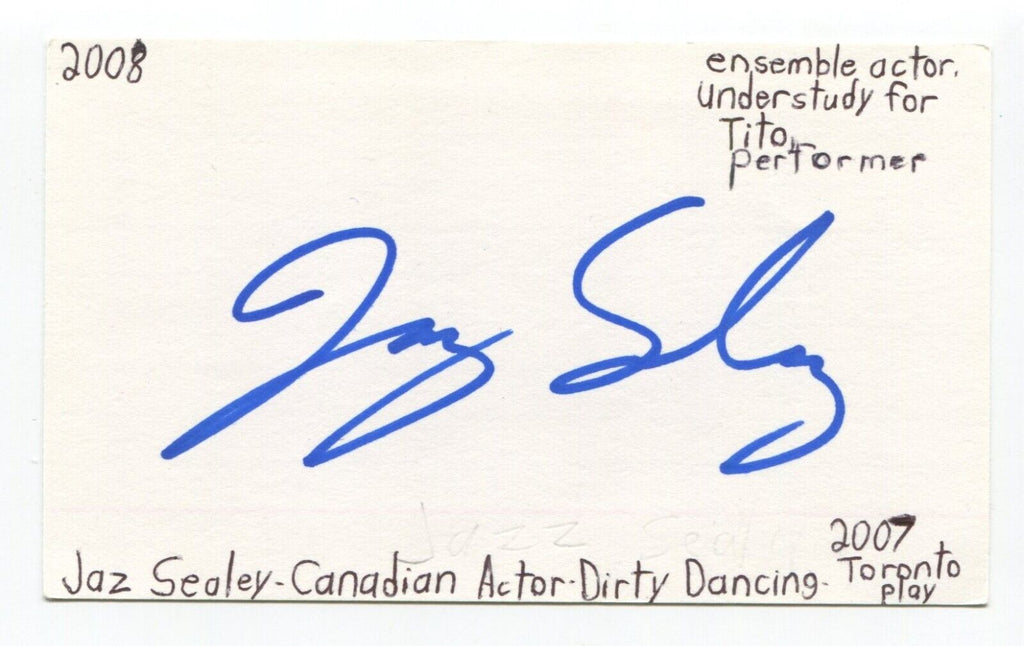 2008
ensemble actor.
Understudy for
Tito
performer
Jaz Sealey
Jazz Sealy
2007
Jaz Sealey-Canadian Actor-Dirty Dancing-Toronto
play